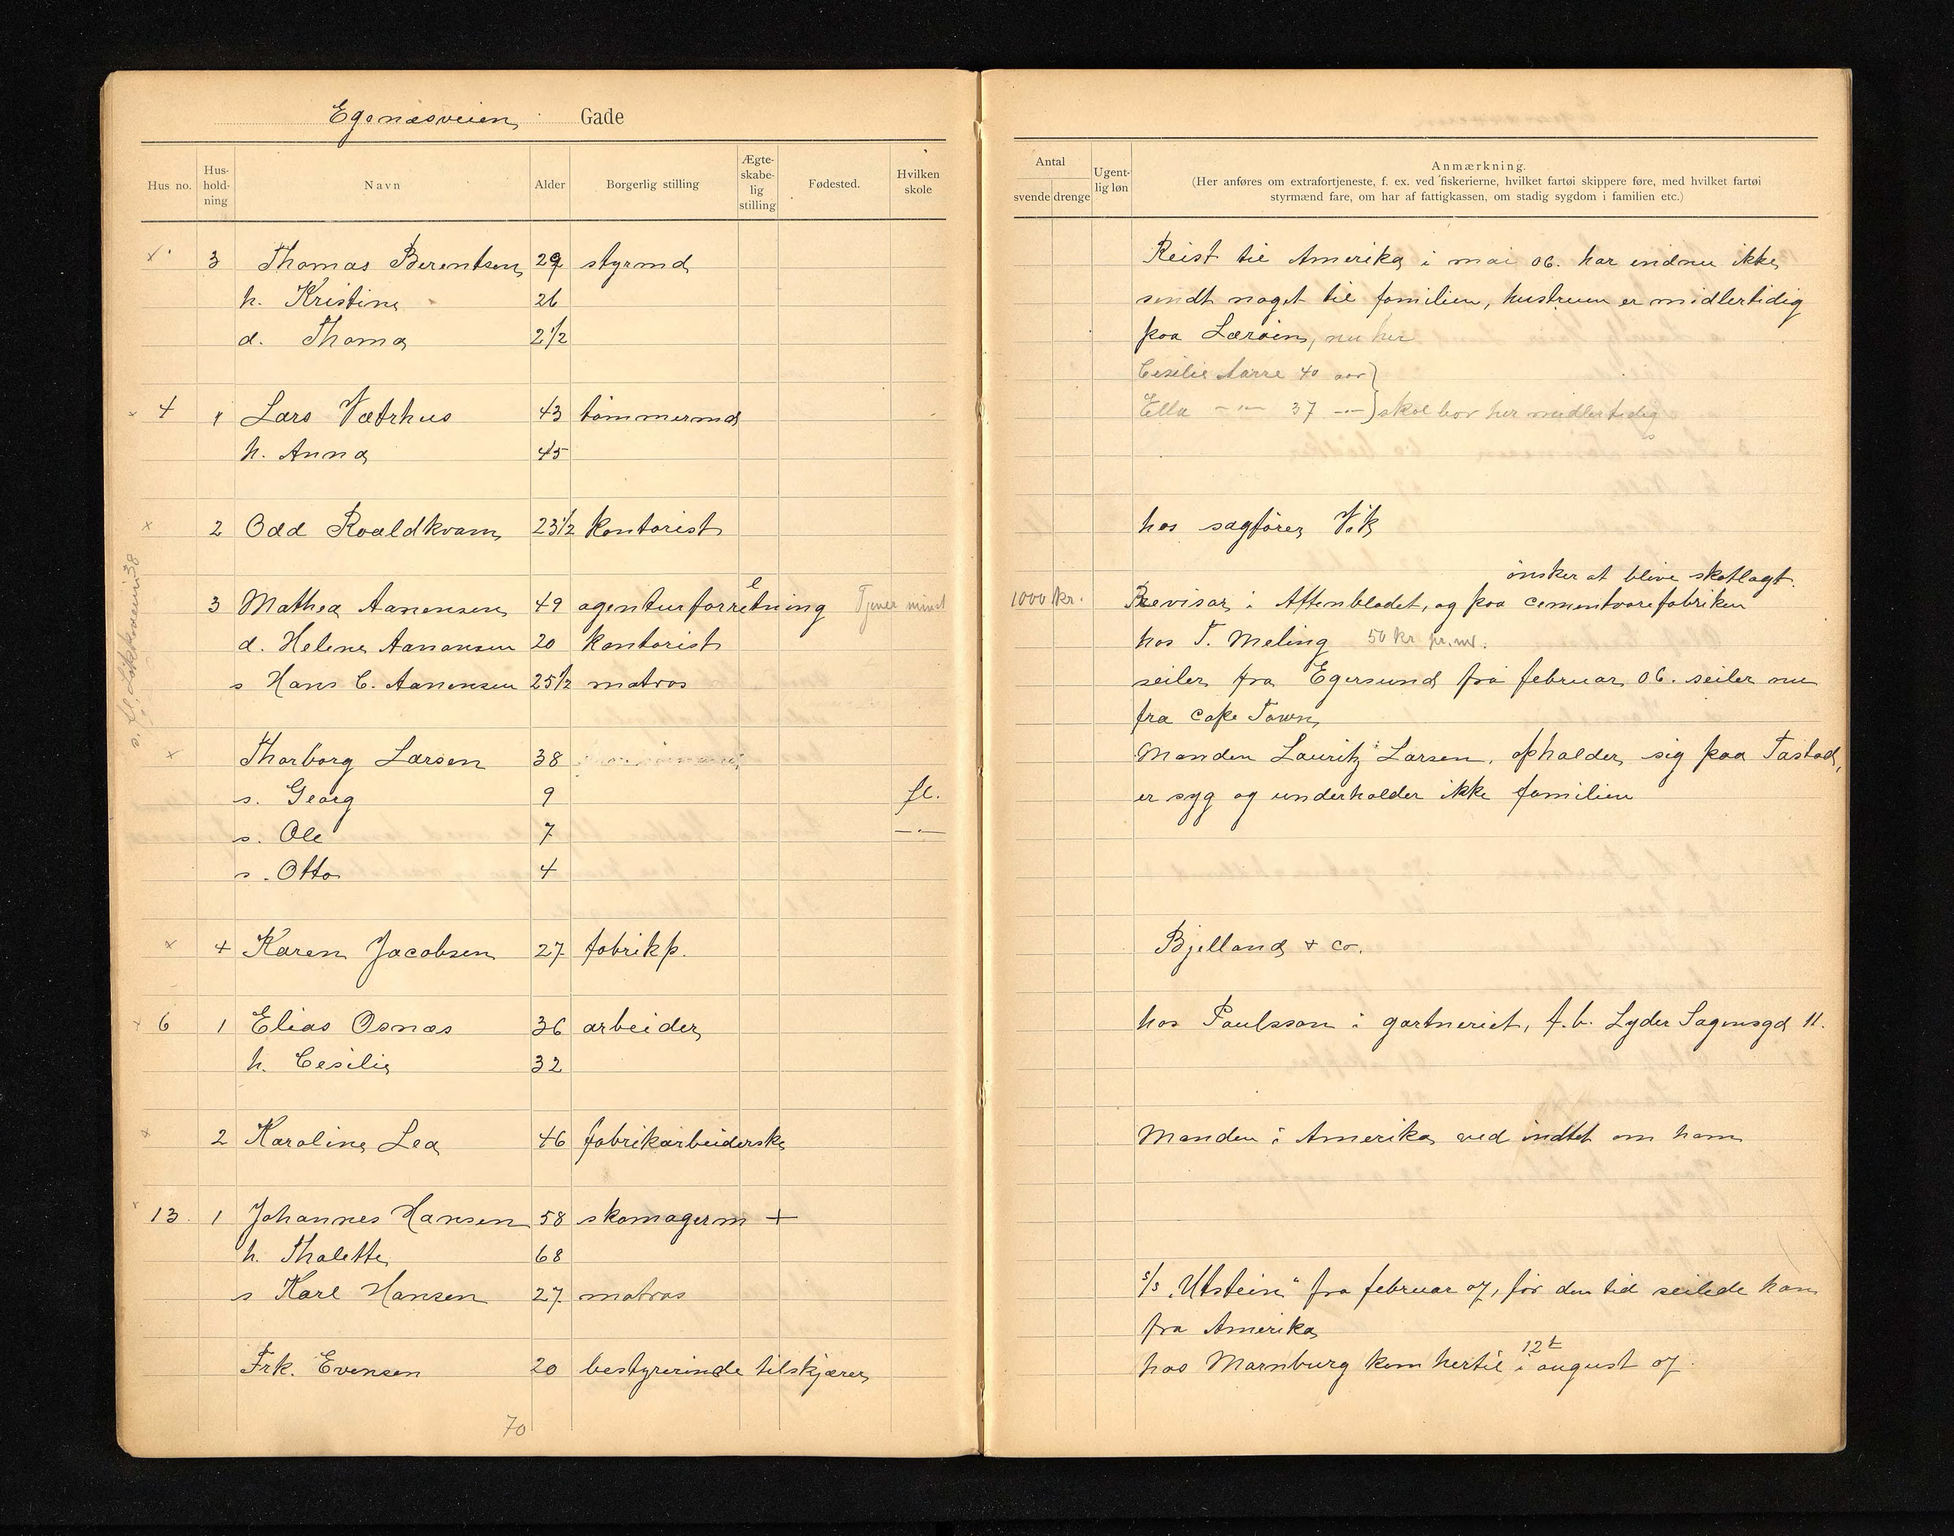 Egenæsveien Gade
Hus no. Hus-hold-ning Navn Alder Borgerlig stilling Ægte-skabe-lig stilling Fødested. Hvilken skole
3 Thomas Berentsen 29 styrmd
h. Kristine 26
d. Thoma 2 1/2
4 1 Lars Vætrhus 43 tømmermd
h. Anna 45
2 Odd Roaldkvam 23 1/2 kontorist
3 Mathea Aanensen 49 agenturforretning Tjener mindst
d. Helene Aanensen 20 kontorist
s Hans C. Aanensen 25 1/2 matros
Thorborg Larsen 38
s. Georg 9 fl.
s. Ole 7 —"—
s. Otto 4
4 Karen Jacobsen 27 fabrikp.
6 1 Elias Osnæs 36 arbeider
h. Cesilie 32
2 Karoline Lea 46 fabrikarbeiderske
13. 1 Johannes Hansen 58 skomagerm +
h. Thalette 68
s Karl Hansen 27 matros
Frk. Evensen 20 bestyrerinde tilskjærer
70
Antal svende drenge Ugent-lig løn
Anmærkning.
(Her anføres om extrafortjeneste, f. ex. ved fiskerierne, hvilket fartøi skippere føre, med hvilket fartøi
styrmænd fare, om har af fattigkassen, om stadig sygdom i familien etc.)
Reist til Amerika i mai 06. har endnu ikke
sendt noget til familien, hustruen er midlertidig
paa Lærøien, nu her
Cesilie Aarre 40 aar }
Ella —"— 37 —"— } skal bor her midlertidig
hos sagfører Vik
ønsker at blive skatlagt.
1000 kr. Revisor i Aftenbladet, og paa cementvarefabriken
hos T. Meling 50 kr pr. md.
seiler fra Egersund fra februar 06. seiler nu
fra Cape Town
Manden Lauritz Larsen, opholder sig paa Tastad,
er syg og underholder ikke familien
Bjelland & Co.
hos Paulsson i gartneriet, f. b. Lyder Sagensgd 11.
Manden i Amerika, ved indtet om ham
s/s „Utstein" fra februar 07, før den tid seilede han
fra Amerika
12t
hos Marnburg kom hertil i august 07.